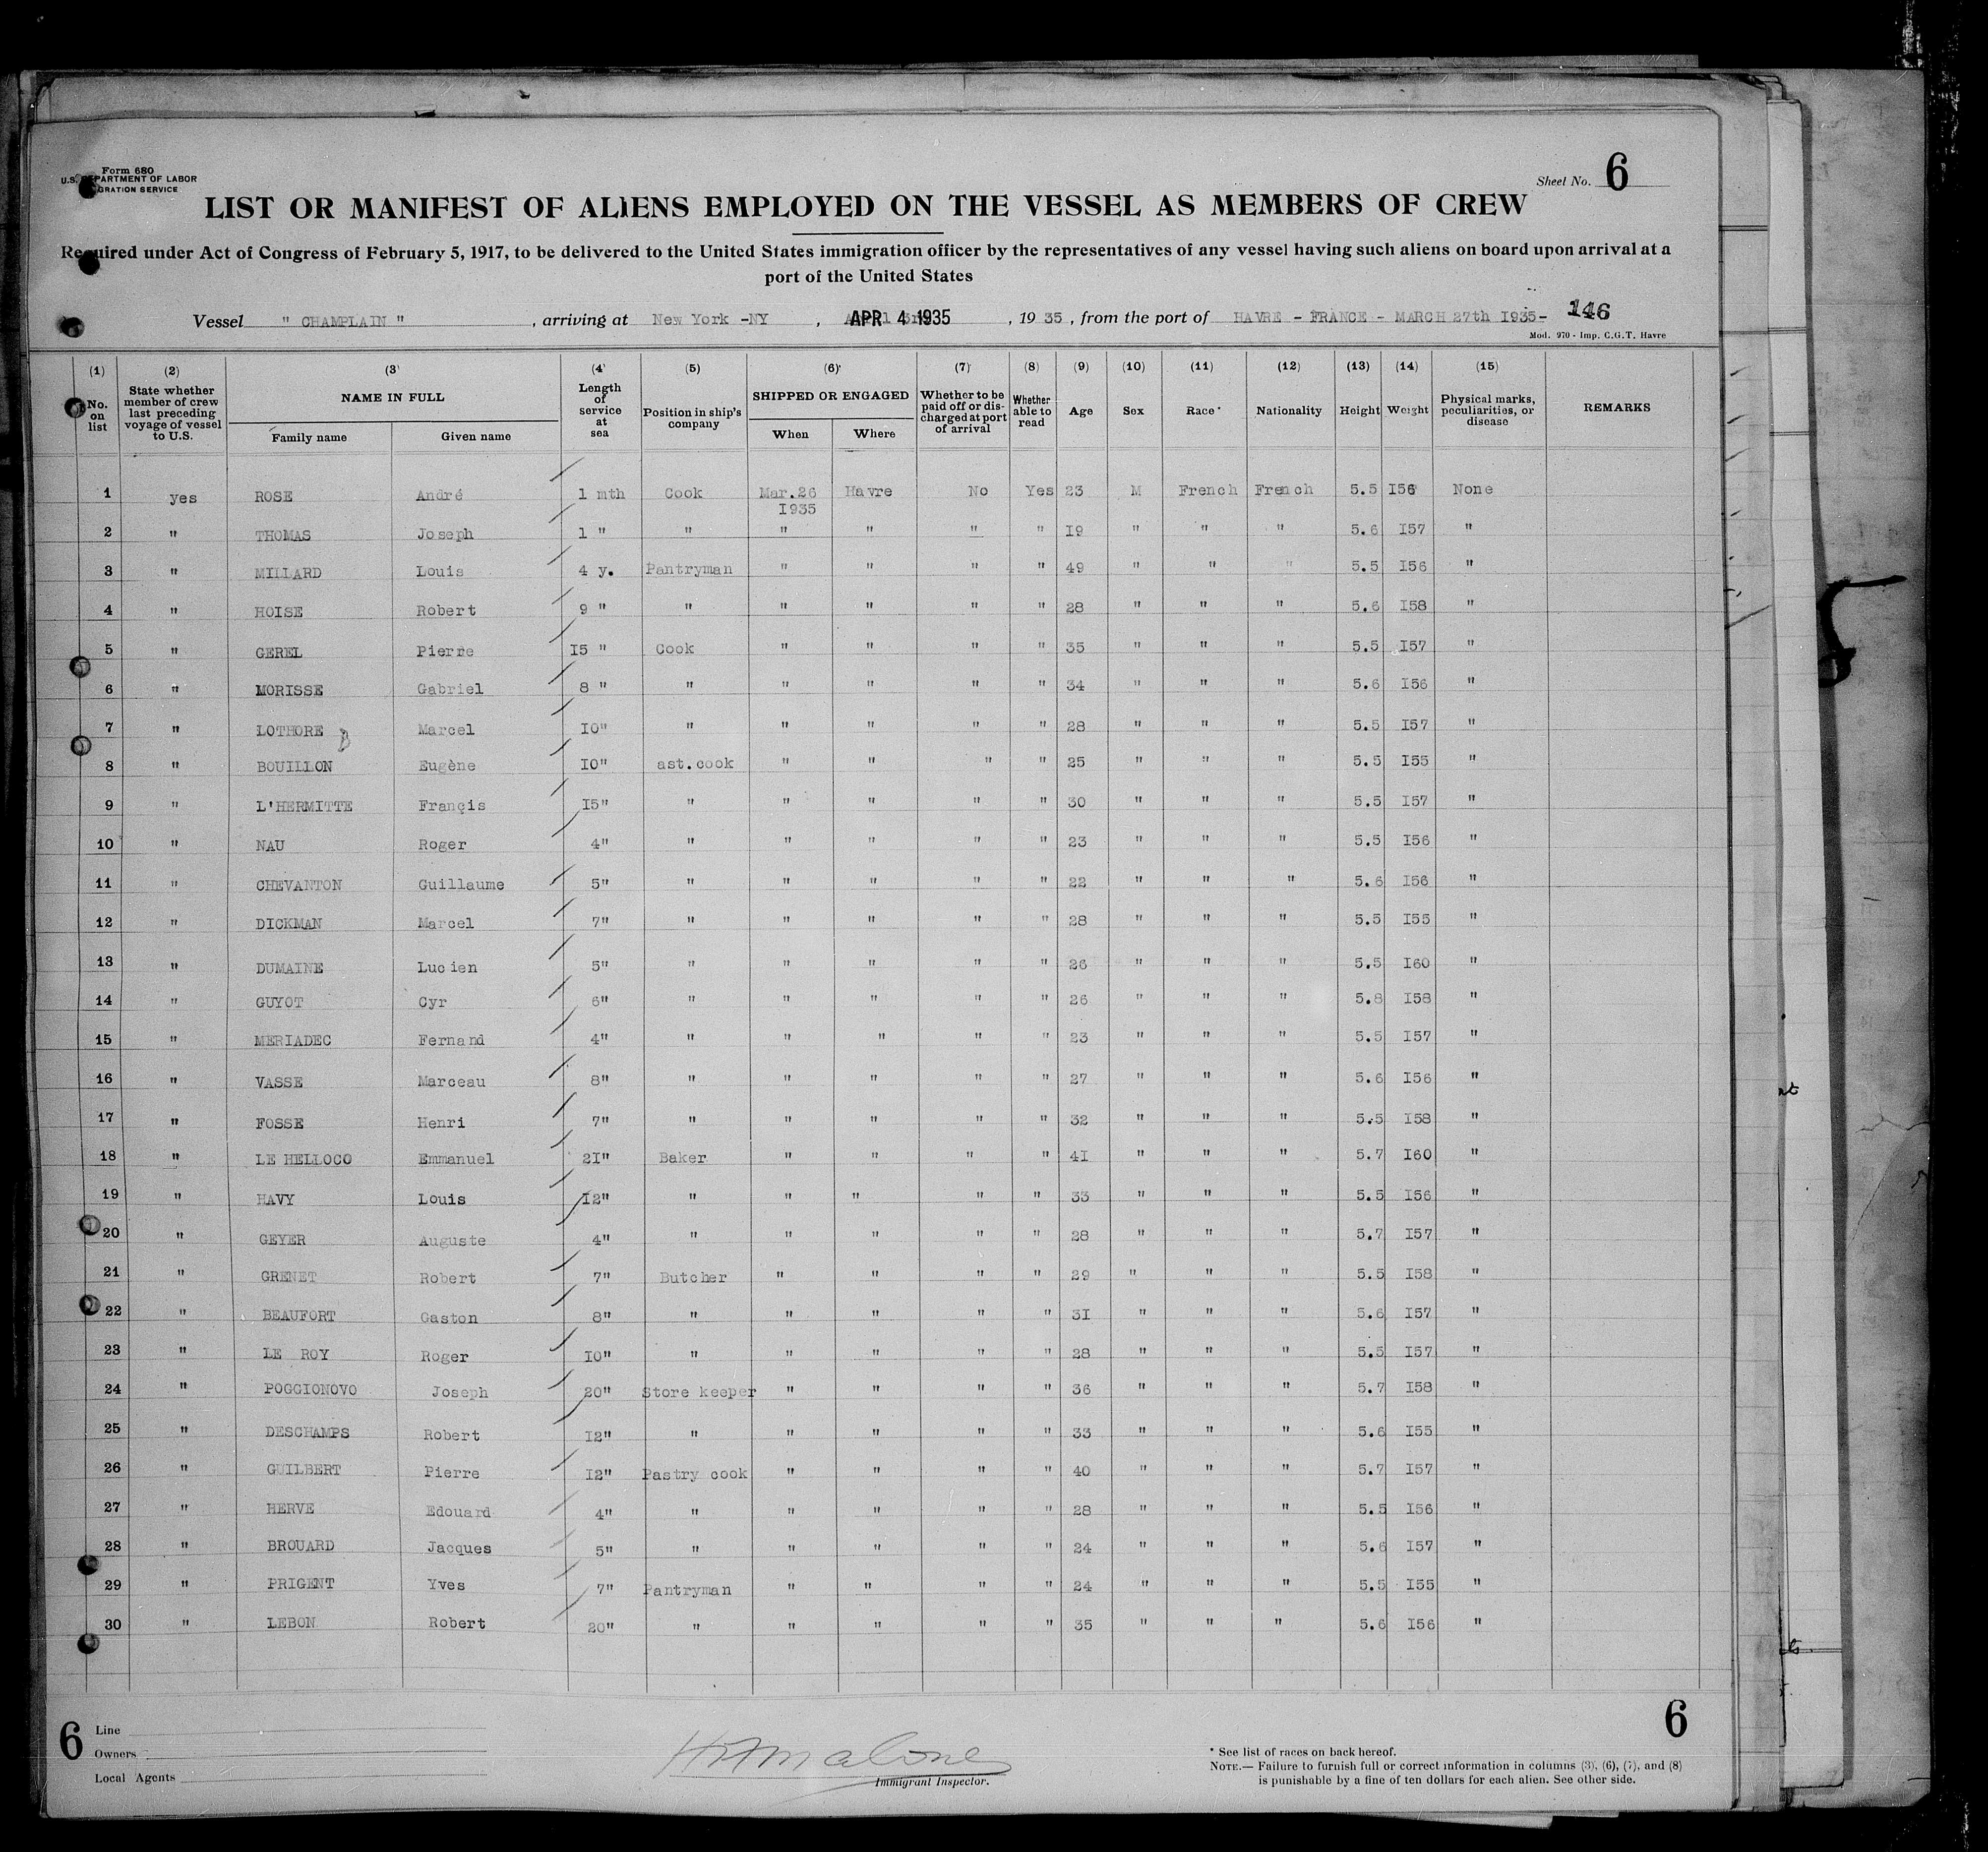 Form 680
U.S. DEPARTMENT OF LABOR
GRATION SERVICE
Sheet No. 6
LIST OR MANIFEST OF ALIENS EMPLOYED ON THE VESSEL AS MEMBERS OF CREW
Required under Act of Congress of February 5, 1917, to be delivered to the United States immigration officer by the representatives of any vessel having such aliens on board upon arrival at a
port of the United States
Vessel " CHAMPLAIN ", arriving at New York -NY, APR 4 1935, 1935, from the port of HAVRE - FRANCE - MARCH 27th I935- 146
Mod. 970 - Imp. C.G.T. Havre
(1) No. on list (2) State whether member of crew last preceding voyage of vessel to U.S. (3) NAME IN FULL Family name Given name (4) Length of service at sea (5) Position in ship's company (6) SHIPPED OR ENGAGED When Where (7) Whether to be paid off or discharged at port of arrival (8) Whether able to read (9) Age (10) Sex (11) Race* (12) Nationality (13) Height (14) Weight (15) Physical marks, peculiarities, or disease REMARKS
1 yes ROSE André 1 mth Cook Mar.26 I935 Havre No Yes 23 M French French 5.5 I56 None
2 " THOMAS Joseph 1 " " " " " " I9 " " " 5.6 I57 "
3 " MILLARD Louis 4 y. Pantryman " " " " 49 " " " 5.5 I56 "
4 " HOISE Robert 9 " " " " " " 28 " " " 5.6 I58 "
5 " GEREL Pierre I5 " Cook " " " " 35 " " " 5.5 I57 "
6 " MORISSE Gabriel 8 " " " " " " 34 " " " 5.6 I56 "
7 " LOTHORE Marcel IO" " " " " " 28 " " " 5.5 I57 "
8 " BOUILLON Eugène IO" ast.cook " " " " 25 " " " 5.5 I55 "
9 " L'HERMITTE Françis I5" " " " " " 30 " " " 5.5 I57 "
10 " NAU Roger 4" " " " " " 23 " " " 5.5 I56 "
11 " CHEVANTON Guillaume 5" " " " " " 22 " " " 5.6 I56 "
12 " DICKMAN Marcel 7" " " " " " 28 " " " 5.5 I55 "
13 " DUMAINE Lucien 5" " " " " " 26 " " " 5.5 I60 "
14 " GUYOT Cyr 6" " " " " " 26 " " " 5.8 I58 "
15 " MERIADEC Fernand 4" " " " " " 23 " " " 5.5 I57 "
16 " VASSE Marceau 8" " " " " " 27 " " " 5.6 I56 "
17 " FOSSE Henri 7" " " " " " 32 " " " 5.5 I58 "
18 " LE HELLOCO Emmanuel 2I" Baker " " " " 4I " " " 5.7 I60 "
19 " HAVY Louis I2" " " " " " 33 " " " 5.5 I56 "
20 " GEYER Auguste 4" " " " " " 28 " " " 5.7 I57 "
21 " GRENET Robert 7" Butcher " " " " 29 " " " 5.5 I58 "
22 " BEAUFORT Gaston 8" " " " " " 3I " " " 5.6 I57 "
23 " LE ROY Roger IO" " " " " " 28 " " " 5.5 I57 "
24 " POGGIONOVO Joseph 20" Store keeper " " " " 36 " " " 5.7 I58 "
25 " DESCHAMPS Robert I2" " " " " " 33 " " " 5.6 I55 "
26 " GUILBERT Pierre I2" Pastry cook " " " " 40 " " " 5.7 I57 "
27 " HERVE Edouard 4" " " " " " 28 " " " 5.5 I56 "
28 " BROUARD Jacques 5" " " " " " 24 " " " 5.6 I57 "
29 " PRIGENT Yves 7" Pantryman " " " " 24 " " " 5.5 I55 "
30 " LEBON Robert 20" " " " " " 35 " " " 5.6 I56 "
6
6
Line
Owners
Local Agents
Malone
Immigrant Inspector.
* See list of races on back hereof.
NOTE.— Failure to furnish full or correct information in columns (3), (6), (7), and (8)
is punishable by a fine of ten dollars for each alien. See other side.